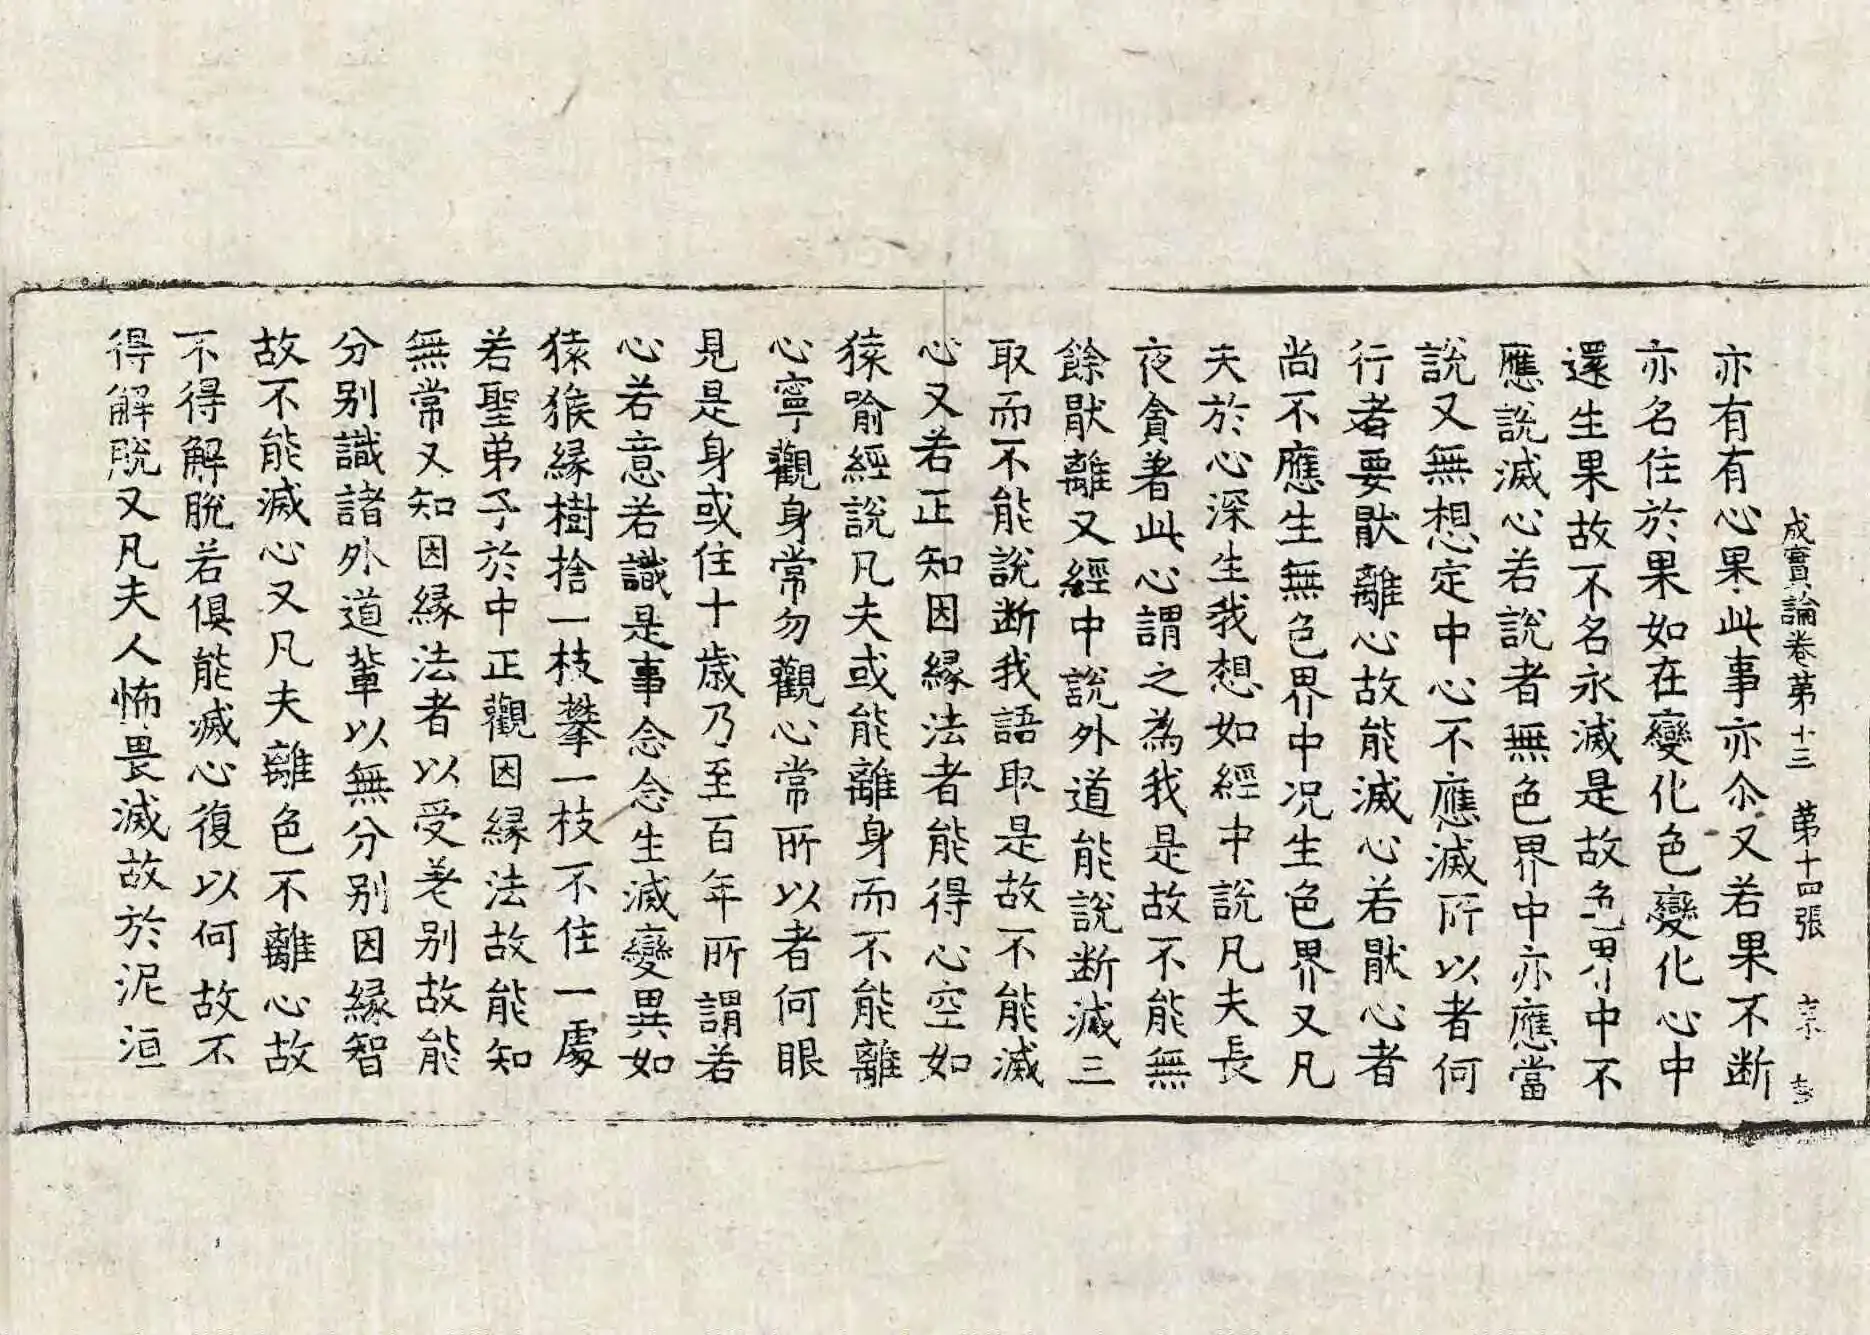 成實論卷第十三　第十四張
亦有有心果此事亦尒又若果不断
亦名住於果如在變化色變化心中
還生果故不名永滅是故色界中不
應說滅心若說者無色界中亦應當
說又無想定中心不應滅所以者何
行者要猒離心故能滅心若猒心者
尚不應生無色界中况生色界又凡
夫於心深生我想如經中說凡夫長
夜貪著此心謂之為我是故不能無
餘猒離又經中說外道能說断滅三
取而不能說断我語取是故不能滅
心又若正知因緣法者能得心空如
猿喻經說凡夫或能離身而不能離
心寧觀身常勿觀心常所以者何眼
見是身或住十歲乃至百年所謂若
心若意若識是事念念生滅變異如
猿猴緣樹捨一枝攀一枝不住一處
若聖弟子於中正觀因緣法故能知
無常又知因緣法者以受差別故能
分別識諸外道輩以無分別因緣智
故不能滅心又凡夫離色不離心故
不得解脫若俱能滅心復以何故不
得解脫又凡夫人怖畏滅故於泥洹